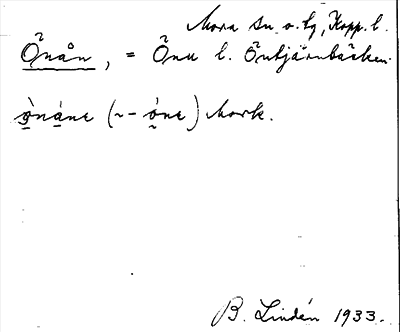 Mora sn. o. tg, Kopp. l.
Õnån, = Õnu l. Õntjärnbäcken.
ò̱ná̱ne (~ – ó̱ne) Mork.
B. Lindén 1933.